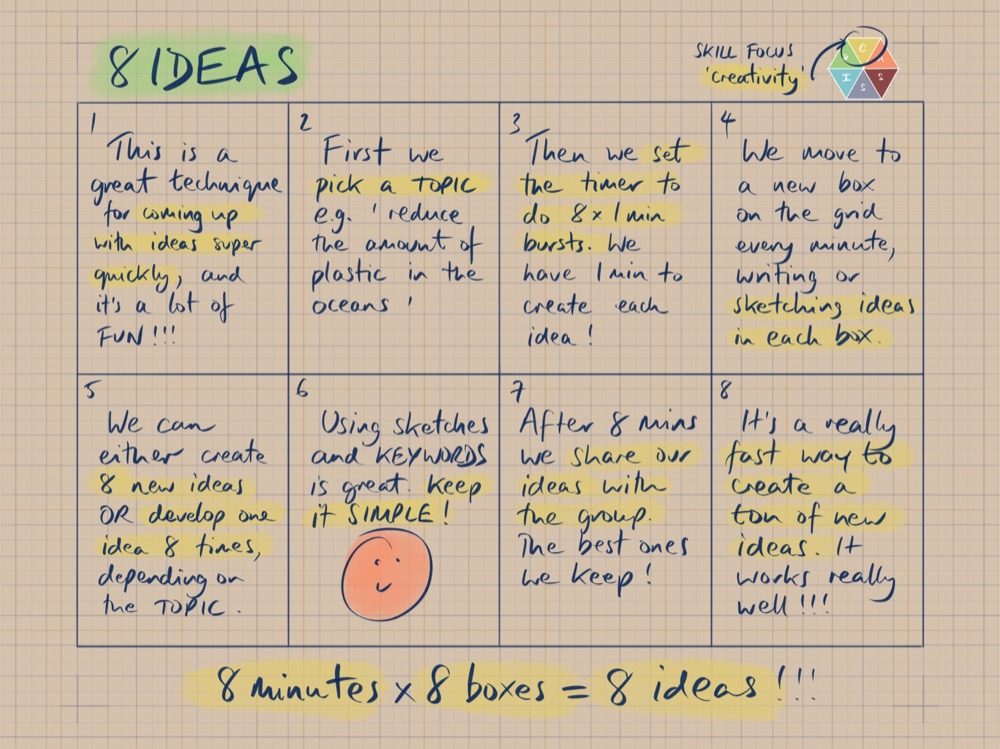 8 IDEAS
SKILL FOCUS
'creativity'
C
I
S
S
1
This is a
great technique
for coming up
with ideas super
quickly, and
it's a lot of
FUN!!!
2
First we
pick a TOPIC
e.g. 'reduce
the amount of
plastic in the
oceans'
3
Then we set
the timer to
do 8x1min
bursts. We
have 1 min to
create each
idea!
4
We move to
a new box
on the grid
every minute,
writing or
sketching ideas
in each box.
5
We can
either create
8 new ideas
OR develop one
idea 8 times,
depending on
the TOPIC.
6
Using sketches
and KEYWORDS
is great. Keep
it SIMPLE!
7
After 8 mins
we share our
ideas with
the group.
The best ones
we keep!
8
It's a really
fast way to
create a
ton of new
ideas. It
works really
well!!!
8 minutes x 8 boxes = 8 ideas!!!